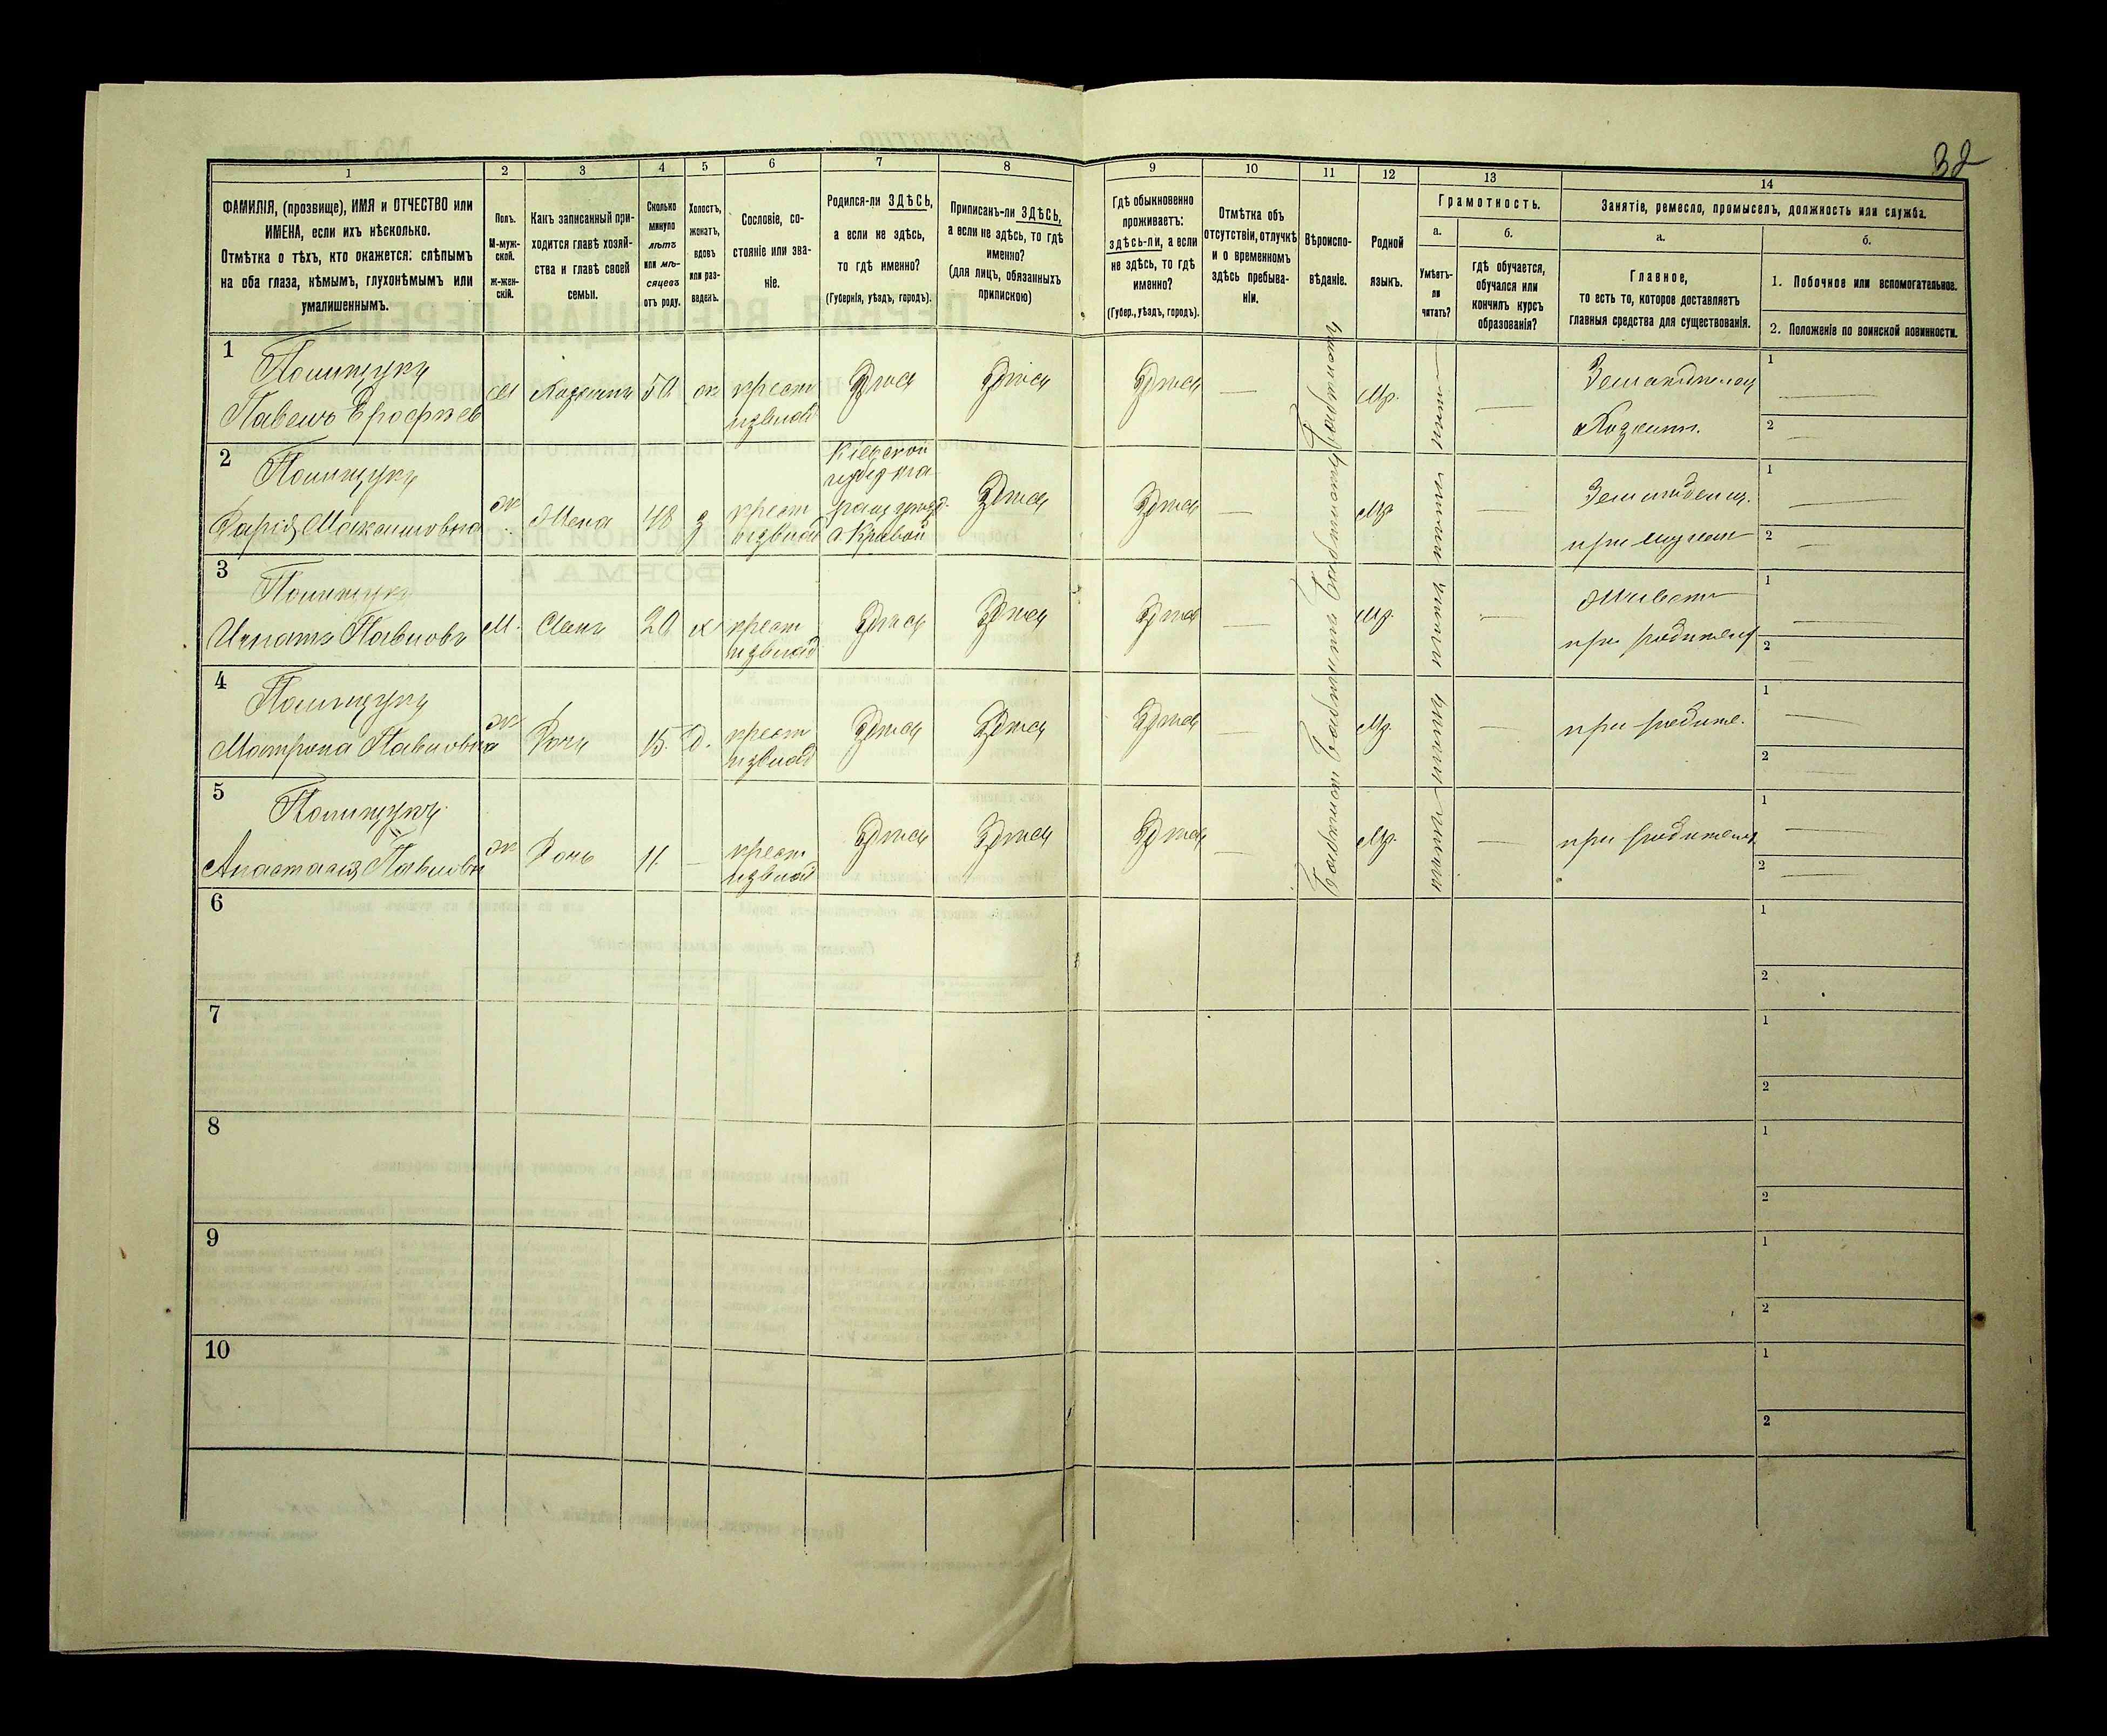 32
1
2
3
4
5
6
7
8
9
10
11
12
13
14
ФАМИЛІЯ, (прозвище), ИМЯ и ОТЧЕСТВО или
ИМЕНА, если ихъ нѣсколько.
Отмѣтка о тѣхъ, кто окажется: слѣпымъ
на оба глаза, нѣмымъ, глухонѣмымъ или
умалишеннымъ.
Полъ.
М-муж-
ской.
ж-жен-
скій.
Какъ записанный при-
ходится главѣ хозяй-
ства и главѣ своей
семьи.
Сколько
минуло
лѣтъ
или мѣ-
сяцевъ
отъ роду.
Холостъ,
женатъ,
вдовъ
или раз-
веденъ.
Сословіе, со-
стояніе или зва-
ніе.
Родился-ли ЗДѢСЬ,
а если не здѣсь,
то гдѣ именно?
(Губернія, уѣздъ, городъ).
Приписанъ-ли ЗДѢСЬ,
а если не здѣсь, то гдѣ
именно?
(для лицъ, обязанныхъ
припискою)
Гдѣ обыкновенно
проживаетъ:
здѣсь-ли, а если
не здѣсь, то гдѣ
именно?
(Губер., уѣздъ, городъ).
Отмѣтка объ
отсутствіи, отлучкѣ
и о временномъ
здѣсь пребыва-
ніи.
Вѣроиспо-
вѣданіе.
Родной
языкъ.
Грамотность.
а.
Умѣетъ-
ли
читать?
б.
гдѣ обучается,
обучался или
кончилъ курсъ
образованія?
Занятіе, ремесло, промыселъ, должность или служба.
а.
Главное,
то есть то, которое доставляетъ
главныя средства для существованія.
б.
1. Побочное или вспомогательное.
2. Положеніе по воинской повинности.
1
Полищукъ
Павелъ Ерофѣев
М
Хозяинъ
50
ж
крест
извлад
Здѣсь
Здѣсь
Здѣсь
—
Баптистъ
Мр.
нѣтъ
—
Земледѣлец
Хозяин.
1
2
2
Полищукъ
Дарія Максимовна
ж
Жена
48
з
крест
извлад
Кіевской
губ
ращ уѣзд.
Здѣсь
Здѣсь
—
Баптистъ
Мр
нѣтъ
Земледелец.
при муже
1
2
3
Полищукъ
Игнатъ Павловъ
М.
Сынъ
20
х
крест
извлад
Здѣсь
Здѣсь
Здѣсь
—
Баптистъ
Мр.
нѣтъ
—
Живет
при родителя
1
2
4
Полищукъ
Матрона Павловна
ж
Дочь
15.
д.
крест
извлад
Здѣсь
Здѣсь
Здѣсь
—
Баптист
Мр.
нѣтъ
—
при родите.
1
2
5
Полищукъ
Анастасія Павловн
ж
Дочь
11.
—
крест
извлад
Здѣсь
Здѣсь
Здѣсь
—
Баптист
Мр.
нѣтъ
—
при родителя
1
2
6
1
2
7
1
2
8
1
2
9
1
2
10
1
2